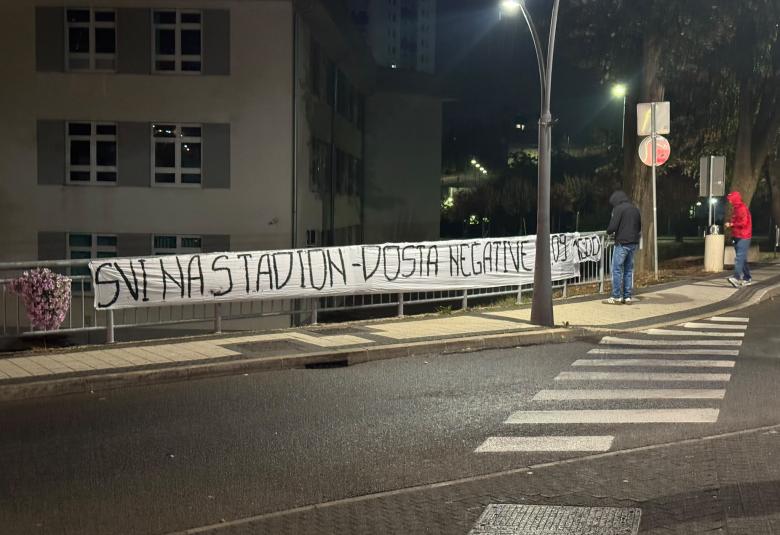 SVI NA STADION - DOSTA NEGATIVE 09 1600